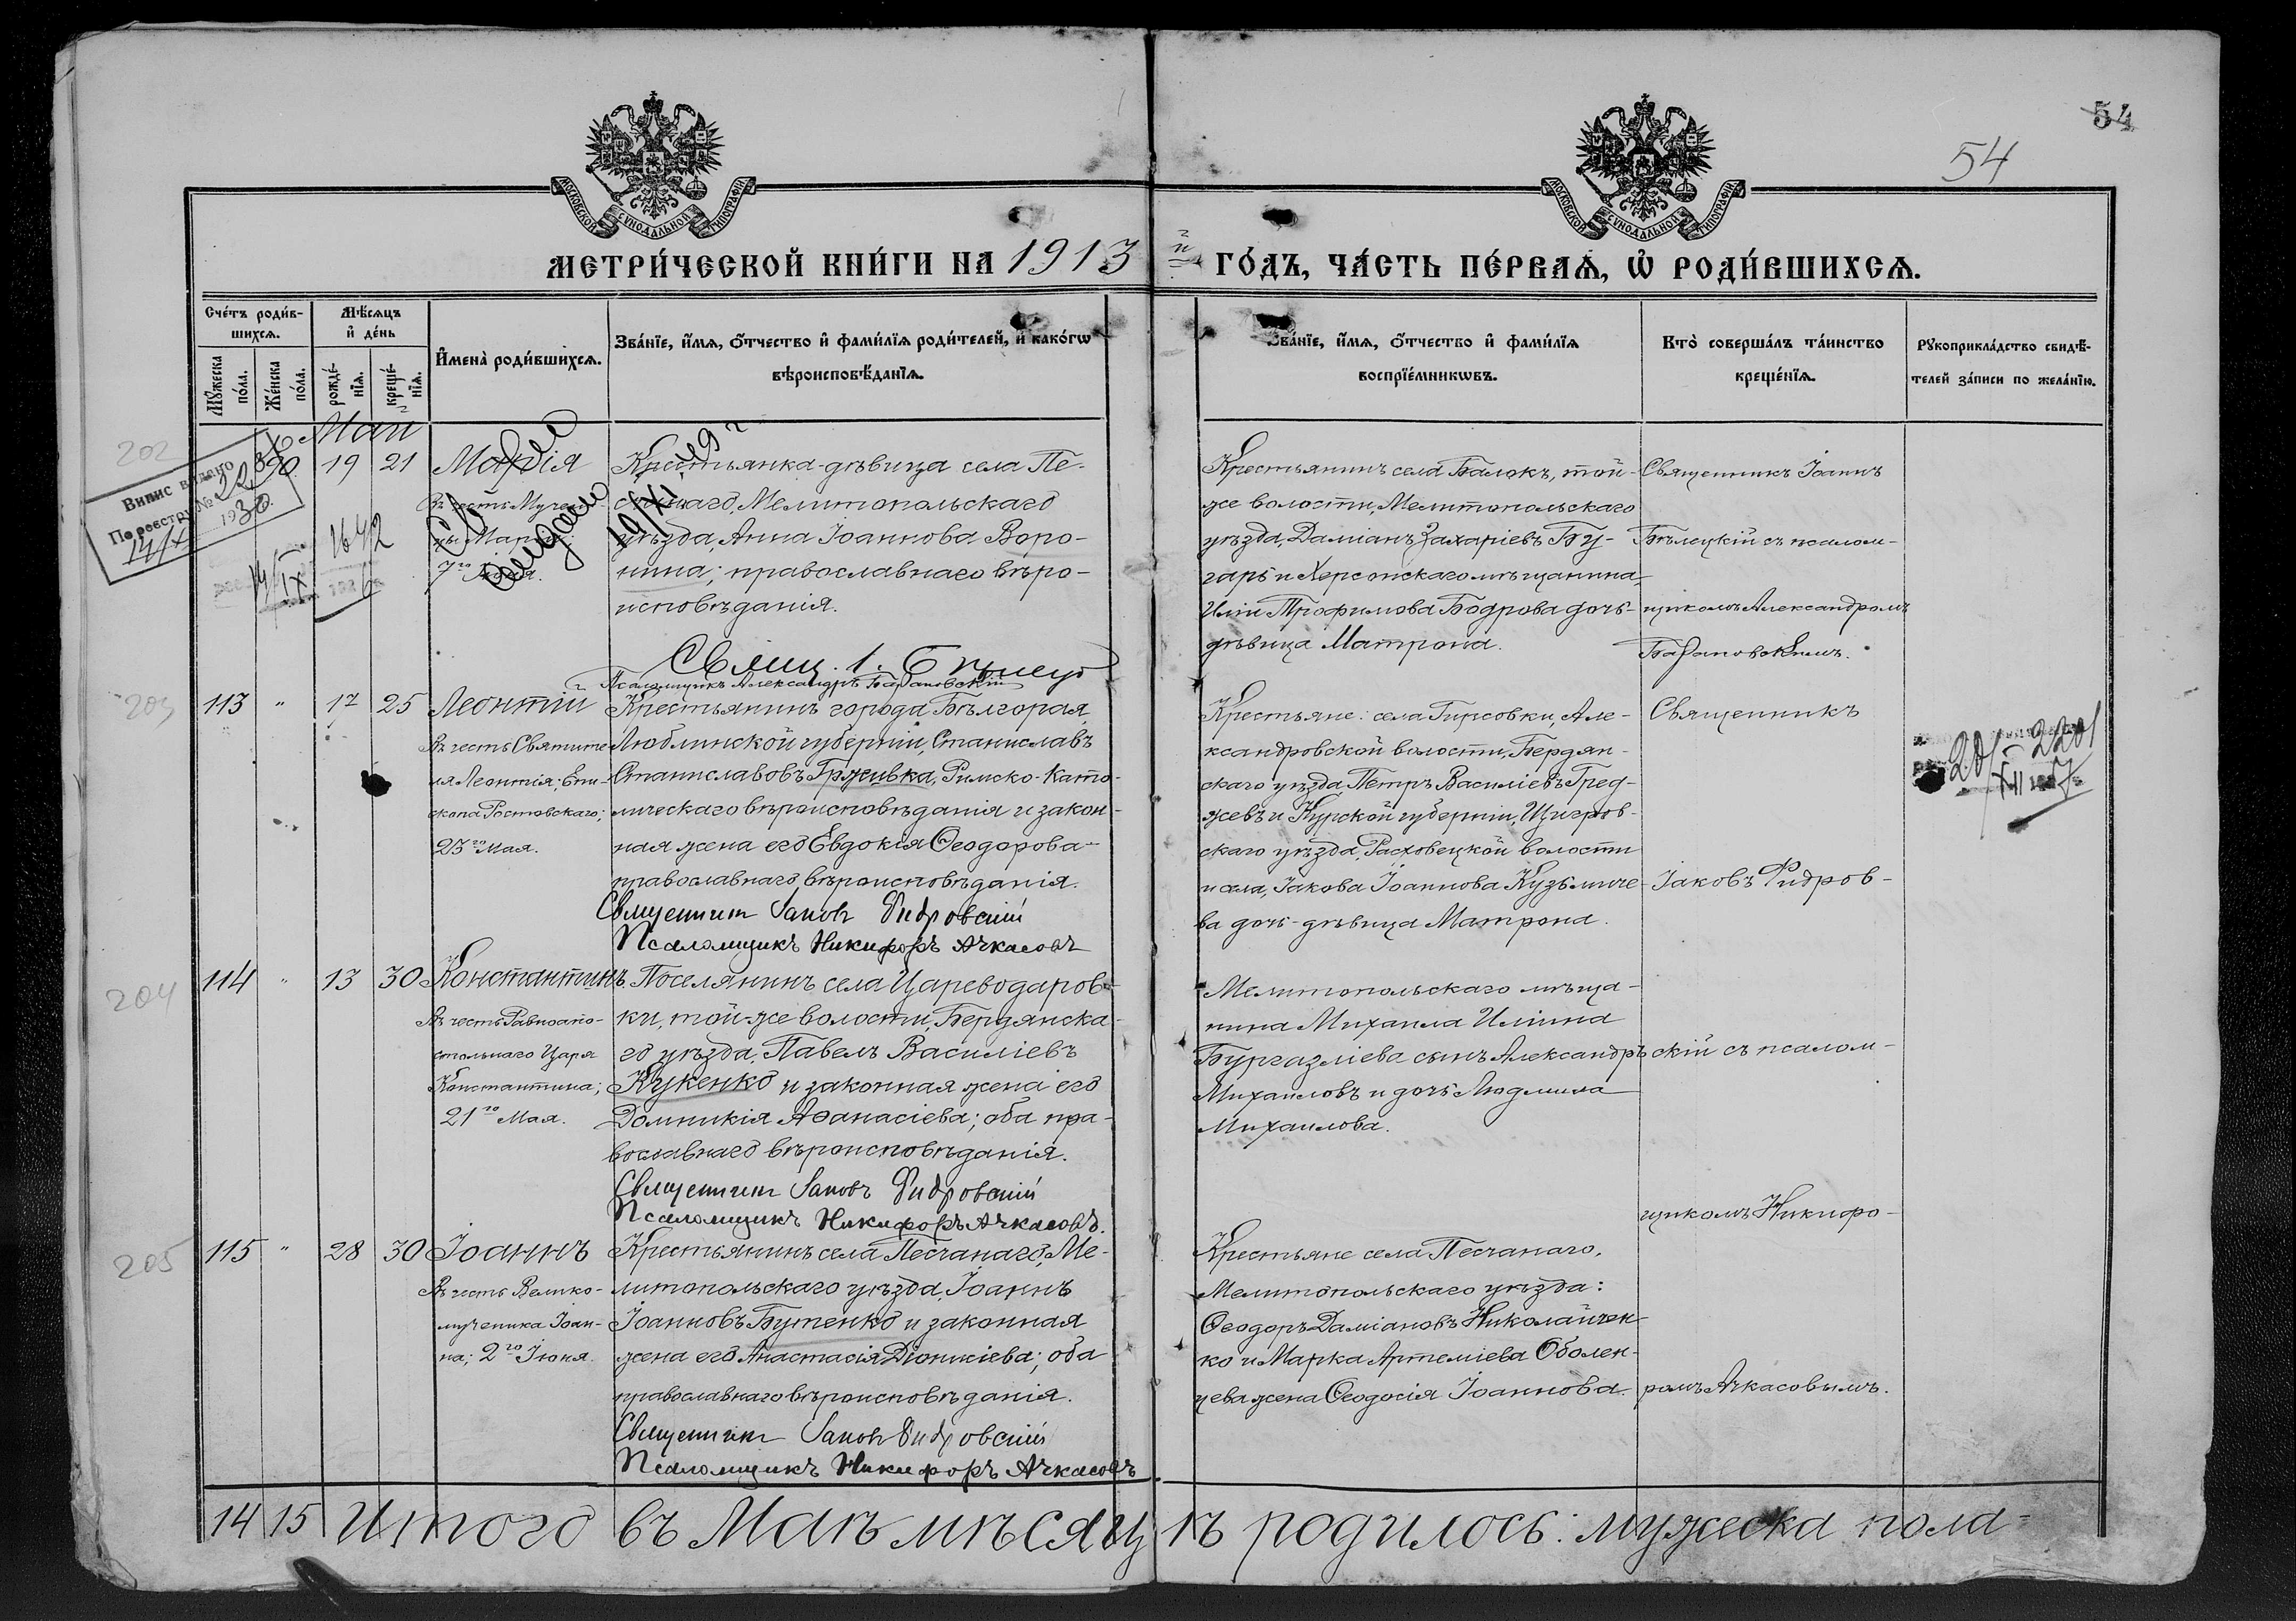 54
54
МОСКОВСКОЙ СУНОДАЛЬНОЙ ТИПОГРАФІИ
МОСКОВСКОЙ СУНОДАЛЬНОЙ ТИПОГРАФІИ
МЕТРИ́ЧЕСКОЙ КНИ́ГИ НА 1913 й ГО́ДЪ, ЧА́СТЬ ПЕ́РВАѦ, Ѡ РОДИ́ВШИХСѦ.
Сче́тъ роди́в-
шихсѧ.
Мꙋжеска по́ла.
Же́нска по́ла.
Мѣ́сѧцъ
и де́нь
рожде́-
нїѧ.
креще́-
нїѧ.
Имена̀ роди́вшихсѧ.
Зва́нїе, и́мѧ, ѻ́тчество и фами́лїѧ роди́телей, и како́гѡ
вѣроисповѣ́данїѧ.
Зва́нїе, и́мѧ, ѻ́тчество и фами́лїѧ
воспрїе́мникѡвъ.
Кто̀ соверша́лъ та́инство
креще́нїѧ.
Рꙋкоприкла́дство свидѣ́-
телей за́писи по жела́нїю.
Май
202
90
19 21
Марія
Въ честь Мучени-
цы Маріи;
7го Іюля.
Випис видано
По реестру №
1936
1642
Выдано
Крестьянка-дѣвица села Пе-
счанаго, Мелитопольскаго
уѣзда, Анна Іоаннова Воро-
нина; православнаго вѣро-
исповѣданія.
Псаломщикъ Александръ Барановскій
Крестьянинъ села Балокъ, той-
же волости, Мелитопольскаго
уѣзда, Даміанъ Захаріевъ Бу-
гарь и Херсонскаго мѣщанина,
Иліи Трофимова Бодрова дочь-
дѣвица Матрона.
Священникъ Іоаннъ
Бѣлецкій съ псалом-
щикомъ Александромъ
Барановскимъ.
203
113 " 17 25
Леонтій
Въ честь Святите-
ля Леонтія; Епи-
скопа Ростовскаго;
23го Мая.
Крестьянинъ города Бѣлгорая
Люблинской губерніи, Станиславъ
Станиславовъ Грживка, Римско-Като-
лическаго вѣроисповѣданія и закон-
ная жена его Евдокія Ѳеодорова-
православнаго вѣроисповѣданія.
Священникъ Іаковъ Фидровскій
Псаломщикъ Никифоръ Ачкасовъ
Крестьяне: села Гирсовки, Але-
ксандровской волости, Бердян-
скаго уѣзда Петръ Василіевъ Гред-
жевъ и Курской губерніи, Щигров-
скаго уѣзда, Расховецкой волости
и села, Іакова Іоаннова Кузьмиче-
ва дочь-дѣвица Матрона.
Священникъ
Іаковъ Фидров-
2201
204
114 " 13 30
Константинъ
Въ честь Равноапо-
стольнаго Царя
Константина;
21го Мая.
Поселянинъ села Цареводаров-
ки, той-же волости, Бердянска-
го уѣзда, Павелъ Василіевъ
Кукенко и законная жена его
Домникія Аѳанасіева; оба пра-
вославнаго вѣроисповѣданія.
Священникъ Іаковъ Фидровскій
Псаломщикъ Никифоръ Ачкасовъ.
Мелитопольскаго мѣща-
нина Михаила Иліина
Бургазліева сынъ Александръ
Михаиловъ и дочь Людмила
Михаилова.
скій съ псалом-
щикомъ Никифо-
205
115 " 28 30
Іоаннъ
Въ честь Велико-
мученика Іоан-
на; 2го Іюня.
Крестьянинъ села Песчанаго, Ме-
литопольскаго уѣзда, Іоаннъ
Іоанновъ Бутенко и законная
жена его Анастасія Діонисіева; оба
православнаго вѣроисповѣданія.
Священникъ Іаковъ Фидровскій
Псаломщикъ Никифоръ Ачкасовъ
Крестьяне села Песчанаго,
Мелитопольскаго уѣзда:
Ѳеодоръ Даміановъ Николайчен-
ко и Марка Артеміева Оболен-
цева жена Ѳеодосія Іоаннова.
ромъ Ачкасовымъ.
14 15 Итого въ Маѣ мѣсяцѣ родилось: мужеска пола-